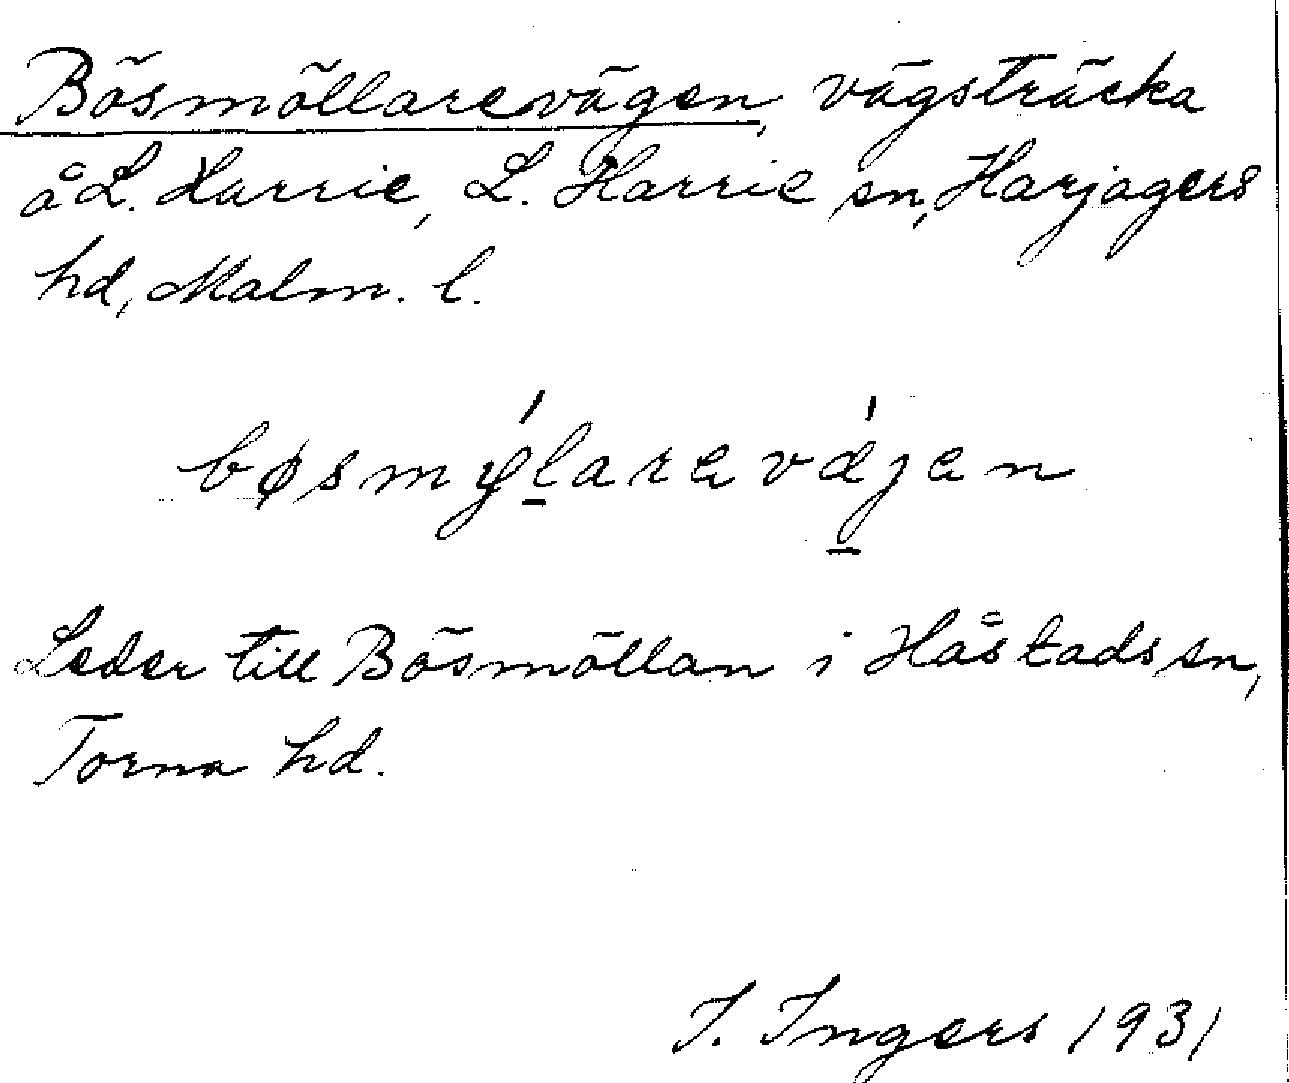 Bösmöllarevägen, vägsträcka
å L. Harrie, L. Harrie sn, Harjagers
hd, Malm. l.
bøsmýlareväjen
Leder till Bösmöllan i Håstads sn,
Torna hd.
I. Ingers 1931